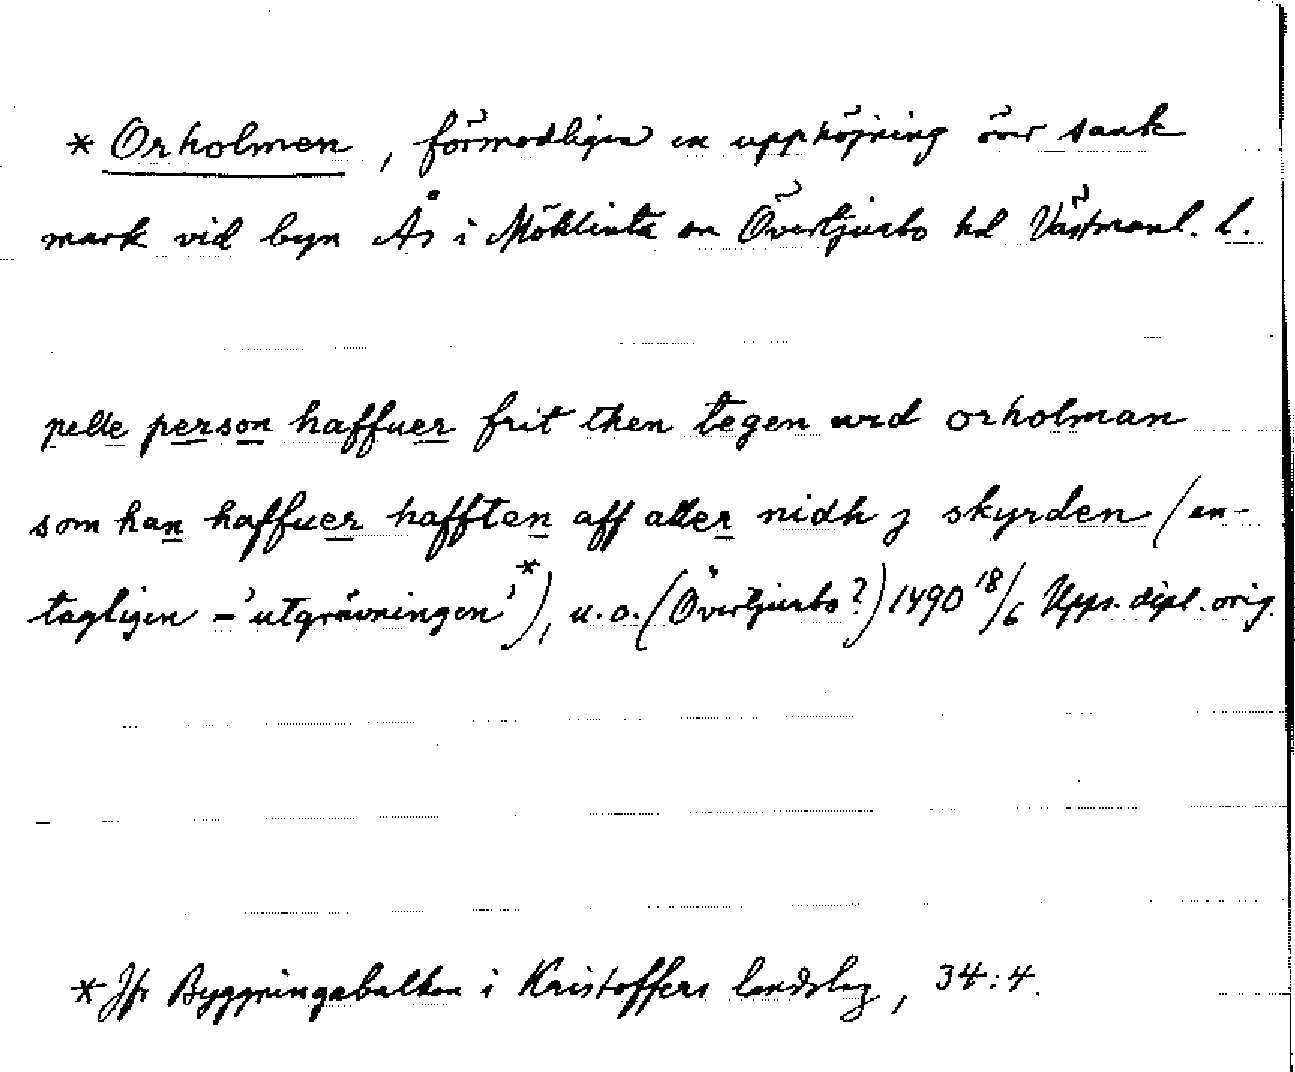 * Orholmen, förmodligen en upphöjning över sank
mark vid byn Ås i Möklinta sn Övertjurbo hd Västmanl. l.
pelle person haffuer frit then tegen wid orholman
som han haffuer hafften aff aller nidh j skyrden (an-
tagligen = 'utgrävningen'*), u.o. (Övertjurbo?) 1490 18/6 Upps. dipl. orig.
* Jfr Byggningabalken i Kristoffers landslag, 34:4.